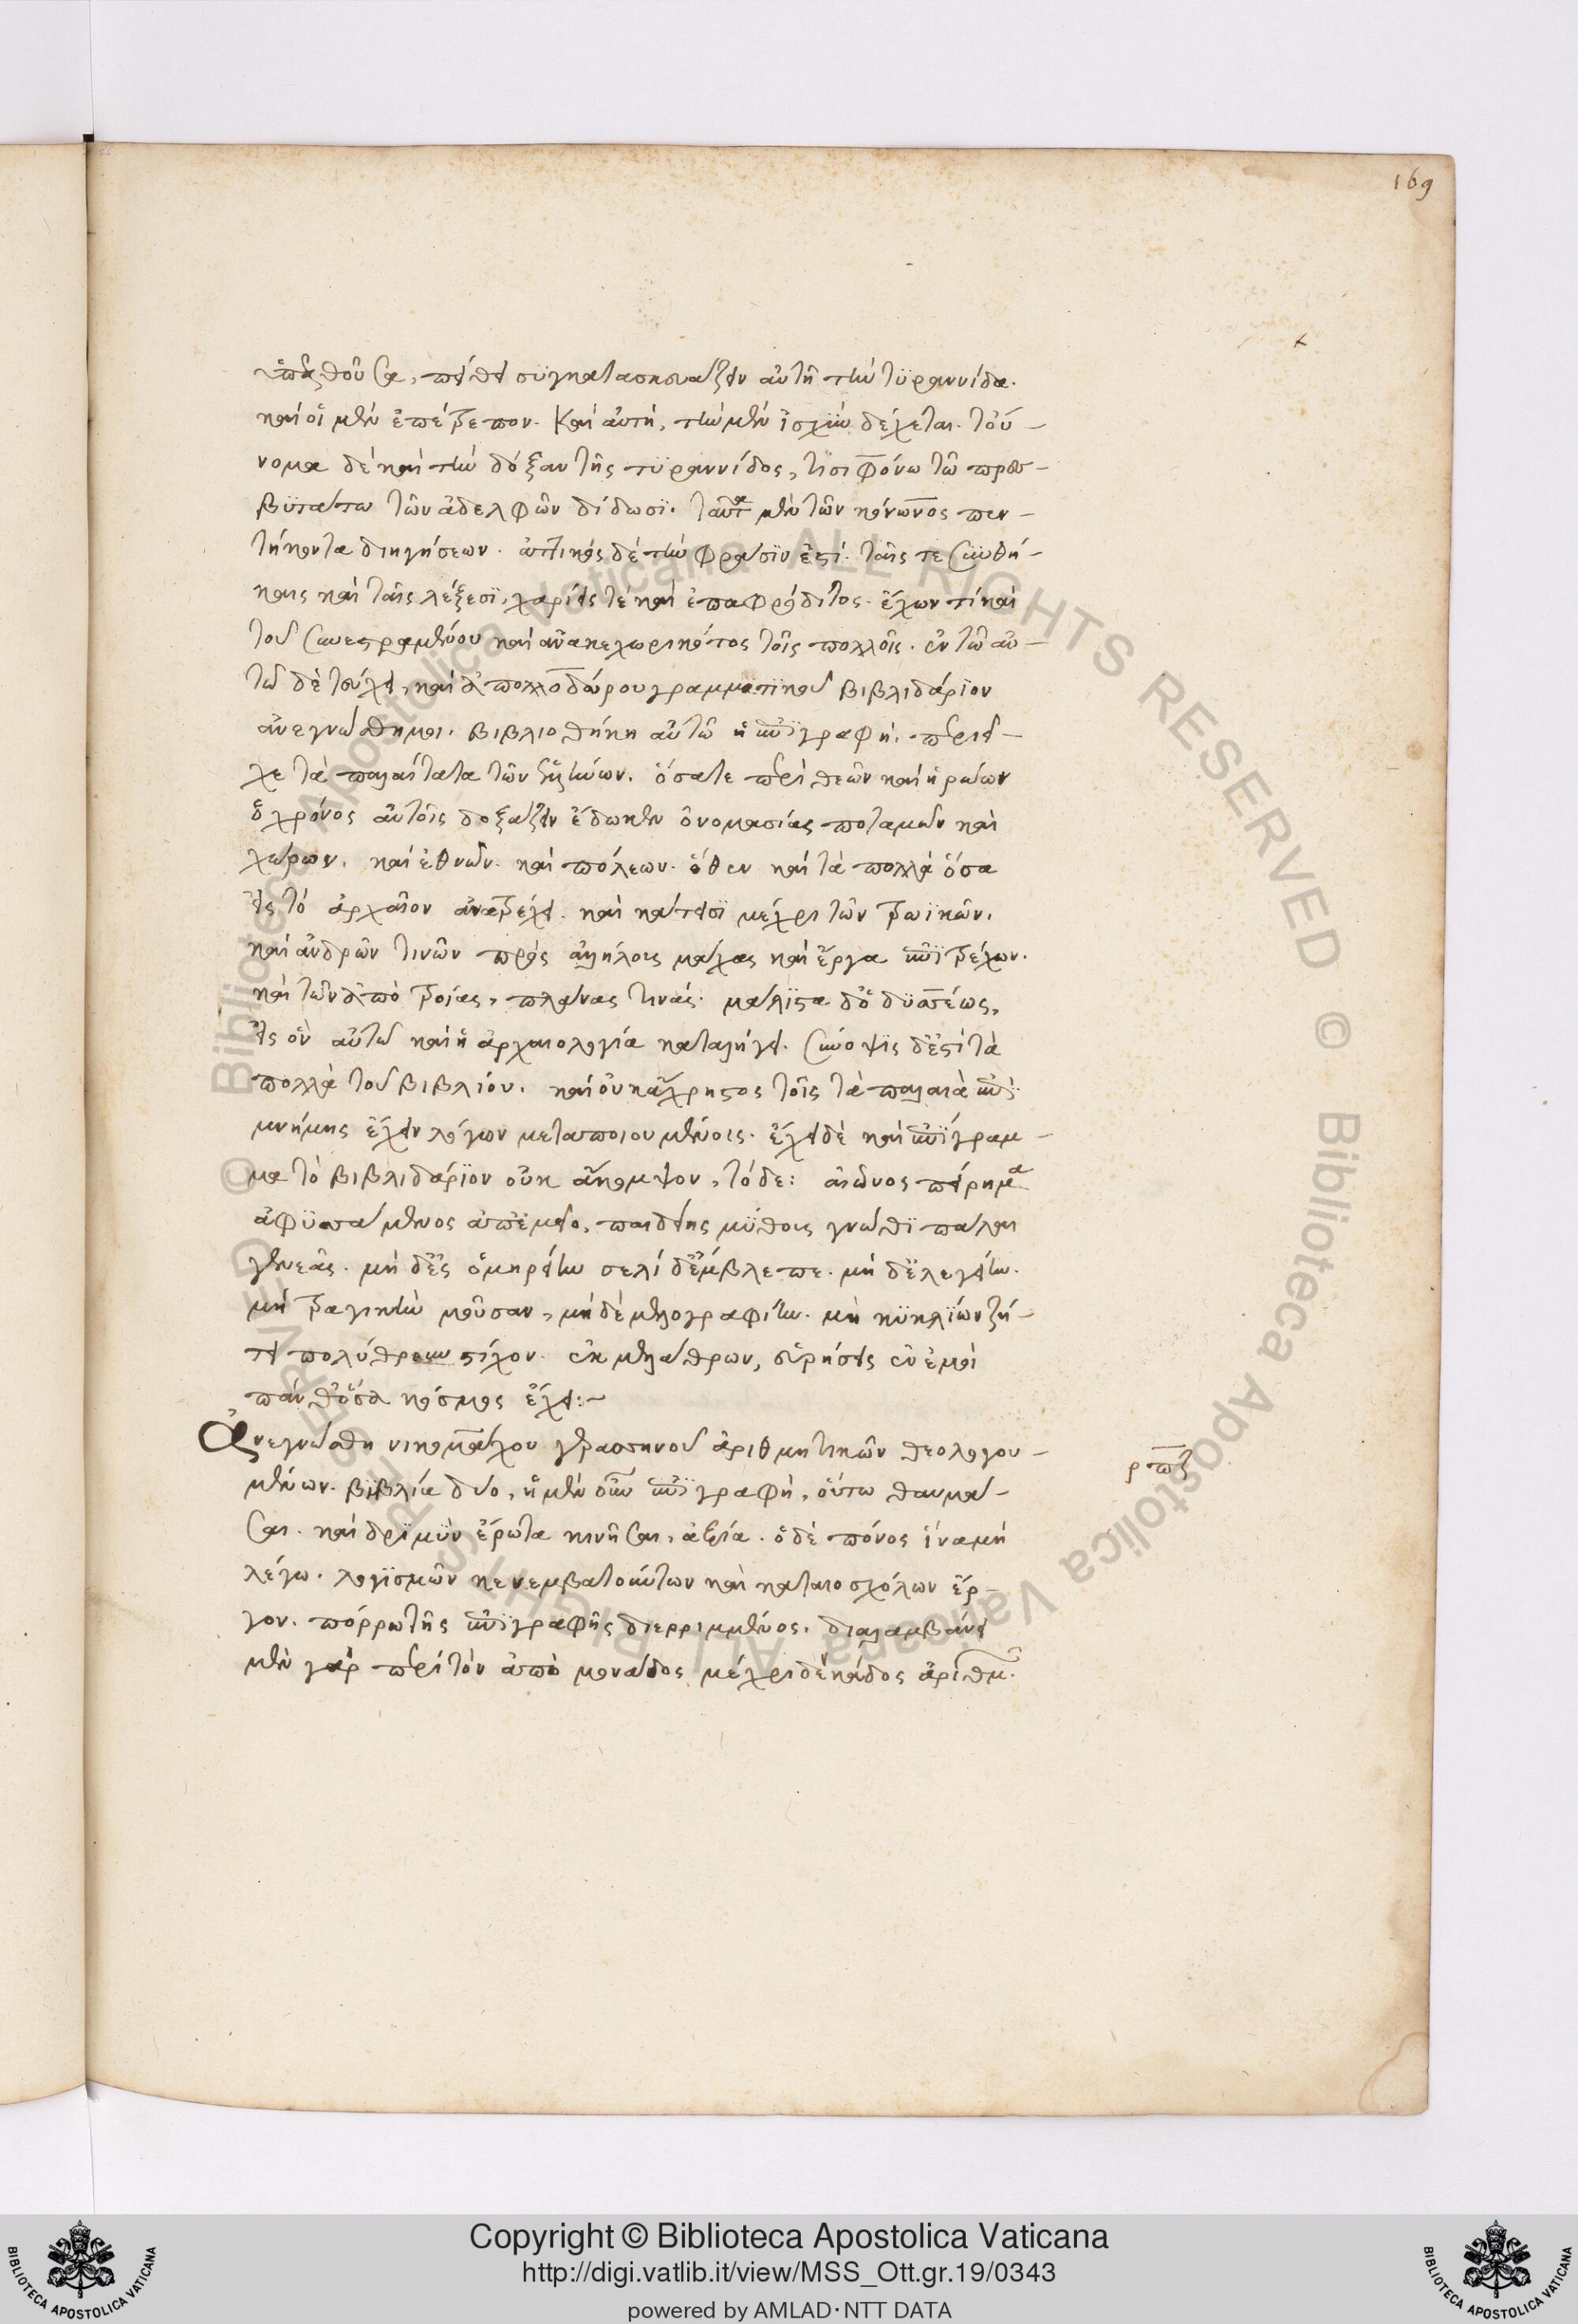 169
ὑπελθοῦσα, πείθει συγκατασκευάζειν αὐτῇ τὴν τυραννίδα.
καὶ οἱ μὲν ἐπέτρεπον. καὶ αὐτὴ, τὴν μὲν ἰσχὺν δέχεται. τοὔ-
νομα δὲ καὶ τὴν δόξαν τῆς τυραννίδος, τισιφόνω τῶ πρεσ-
βυτάτω τῶν ἀδελφῶν δίδωσι. ταῦτα μὲν τῶν κόνωνος πεν-
τήκοντα διηγήσεων. ἀττικὸς δὲ τὴν φράσιν ἐστί. ταῖς τε συνθή-
καις καὶ ταῖς λέξεσι, χαρίεις τὲ καὶ ἐπαφρόδιτος. ἔχων τί καὶ
τοῦ συνεστραμμένου καὶ ἀνακεχωρικότος τοῖς πολλοῖς. ἐν τῶ αὐ-
τῶ δὲ τεύχει, καὶ ἀπολλοδώρου γραμματικοῦ βιβλιδάριον
ἀνεγνώσθη μοι. βιβλιοθήκη αὐτῶ ἡ ἐπιγραφή. περιεῖ-
χε τὰ παλαίτατα τῶν ἑλλήνων. ὅσα τε περὶ θεῶν καὶ ἡρώων
ὁ χρόνος αὐτοῖς δοξάζειν ἔδωκεν ὀνομασίας ποταμῶν καὶ
χώρων. καὶ ἐθνῶν. καὶ πόλεων. ὅθεν καὶ τὰ πολλὰ ὅσα
εἰς τὸ ἀρχαῖον ἀνατρέχει. καὶ κάτεισι μέχρι τῶν τρωϊκῶν.
καὶ ἀνδρῶν τινῶν πρὸς ἀλλήλους μάχας καὶ ἔργα ἐπιτρέχων.
καὶ τῶν ἀπὸ τροίας, πλάνας τινάς. μάλιστα δ' ὀδυσσέως,
εἰς ὃν αὐτῶ καὶ ἡ ἀρχαιολογία καταλήγει. σύνοψις δ' ἐστὶ τὰ
πολλὰ τοῦ βιβλίου. καὶ οὐκ ἄχρηστος τοῖς τὰ παλαιὰ ἐπὶ
μνήμης ἔχειν λόγων μεταποιουμένοις. ἔχει δὲ καὶ ἐπίγραμ-
μα τὸ βιβλιδάριον οὐκ ἄκομψον, τόδε: αἰῶνος πείρημα
ἀφυσσάμενος ἀπ' ἐμεῖο, παιδείης μύθους γνῶθι παλαι
γενέας. μὴ δ' ἐς ὁμηρείην σελίδ' ἔμβλεπε. μὴ δ' ἐλεγείην.
μὴ τραγικὴν μοῦσαν, μὴ δὲ μελογραφίην. μὴ κυκλίων ζή-
τει πολύθρουν στίχον. ἐκ μελάθρων, εὑρήσεις ἐν ἐμοὶ
πάνθ' ὅσα κόσμος ἔχει:~
Ἀνεγνώσθη νικομάχου γερασηνοῦ ἀριθμητικῶν θεολογου-
μένων. βιβλία δύο, ἡ μὲν οὖν ἐπιγραφὴ, οὕτω θαυμά-
σαι. καὶ δριμὺν ἔρωτα κινῆσαι, ἀξία. ὁ δὲ πόνος ἵνα μὴ
λέγω. λογισμῶν κενεμβατούντων καὶ ματαιοσχόλων ἔρ-
γον. πόρρω τῆς ἐπιγραφῆς διερριμμένος. διαλαμβάνει
μὲν γὰρ περὶ τὸν ἀπὸ μονάδος μέχρι δεκάδος ἀριθμ.
ρπζ
Copyright © Biblioteca Apostolica Vaticana
http://digi.vatlib.it/view/MSS_Ott.gr.19/0343
powered by AMLAD·NTT DATA
BIBLIOTECA APOSTOLICA VATICANA
BIBLIOTECA APOSTOLICA VATICANA